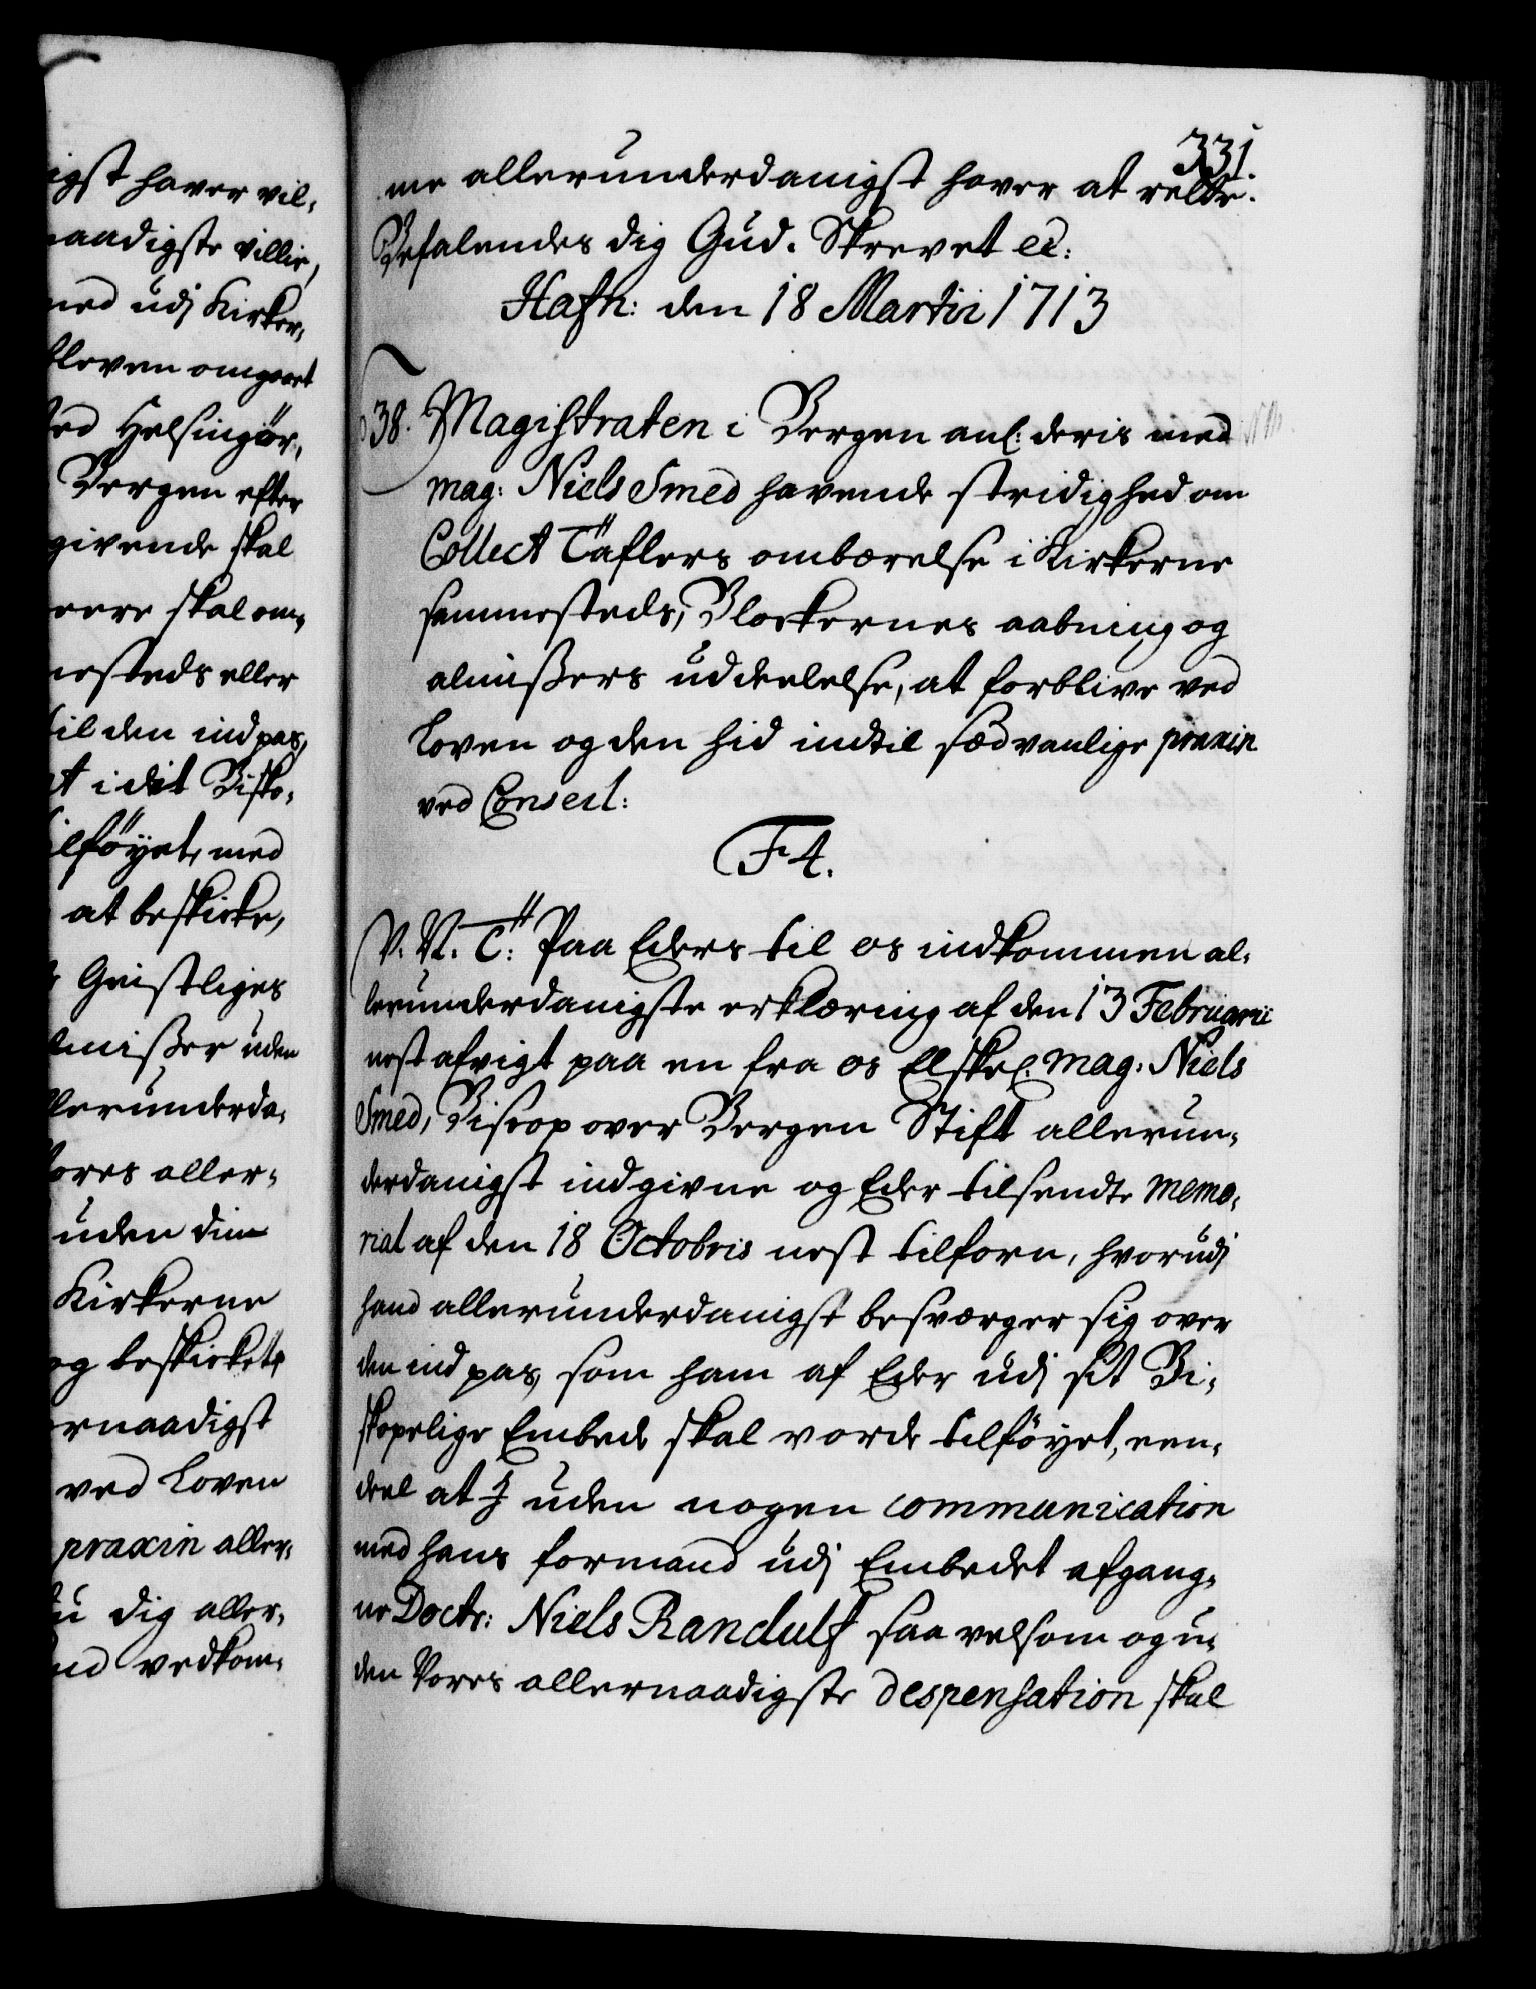 igst haver vil-
naadigste villie,
ned udj Kirker-
bleven omgaaet
ved Helsingör,
Bergen efter
givende skal
være skal om-
mesteds eller
til den indpas,
et i dit Bisko-
tilföyet, med
at beskicke,
Geistliges
almisser uden
allerunderda-
Vores aller-
uden din
Kirkerne
og beskickets
ernaadigst
ved Loven
praxin aller-
du dig aller-
vedkom-
331
me allerunderdanigst haver at rette.
Befalendes dig Gud. Skrevet ec:
Hafn: den 18 Martii 1713
38. Magistraten i Bergen anl: deris med
mag: Niels Smed havende stridighed om
Collect Taflers ombærelse i Kirkerne
sammesteds, Blockernes aabning og
almissers uddeelelse, at forblive ved
Loven og den hid indtil sædvanlige praxin
ved Conseil:
F4.
V. N. T: Paa Eders til os indkommen al-
lerunderdanigste erklæring af den 13 Februarii
nest afvigt paa en fra os Elskel. mag: Niels
Smed, Biscop over Bergen Stift allerun-
derdanigst indgivne og Eder tilsendte memo-
rial af den 18 Octobris nest tilforn, hvorudj
hand allerunderdanigst besværger sig over
den indpas, som ham af Eder udj sit Bi-
skopelige Embede skal vorde tilföyet, een-
deel at I uden nogen communication
med hans formand udj Embedet afgang-
ne Doctr: Niels Randulf saa velsom og u-
den Vores allernaadigste despensation skal